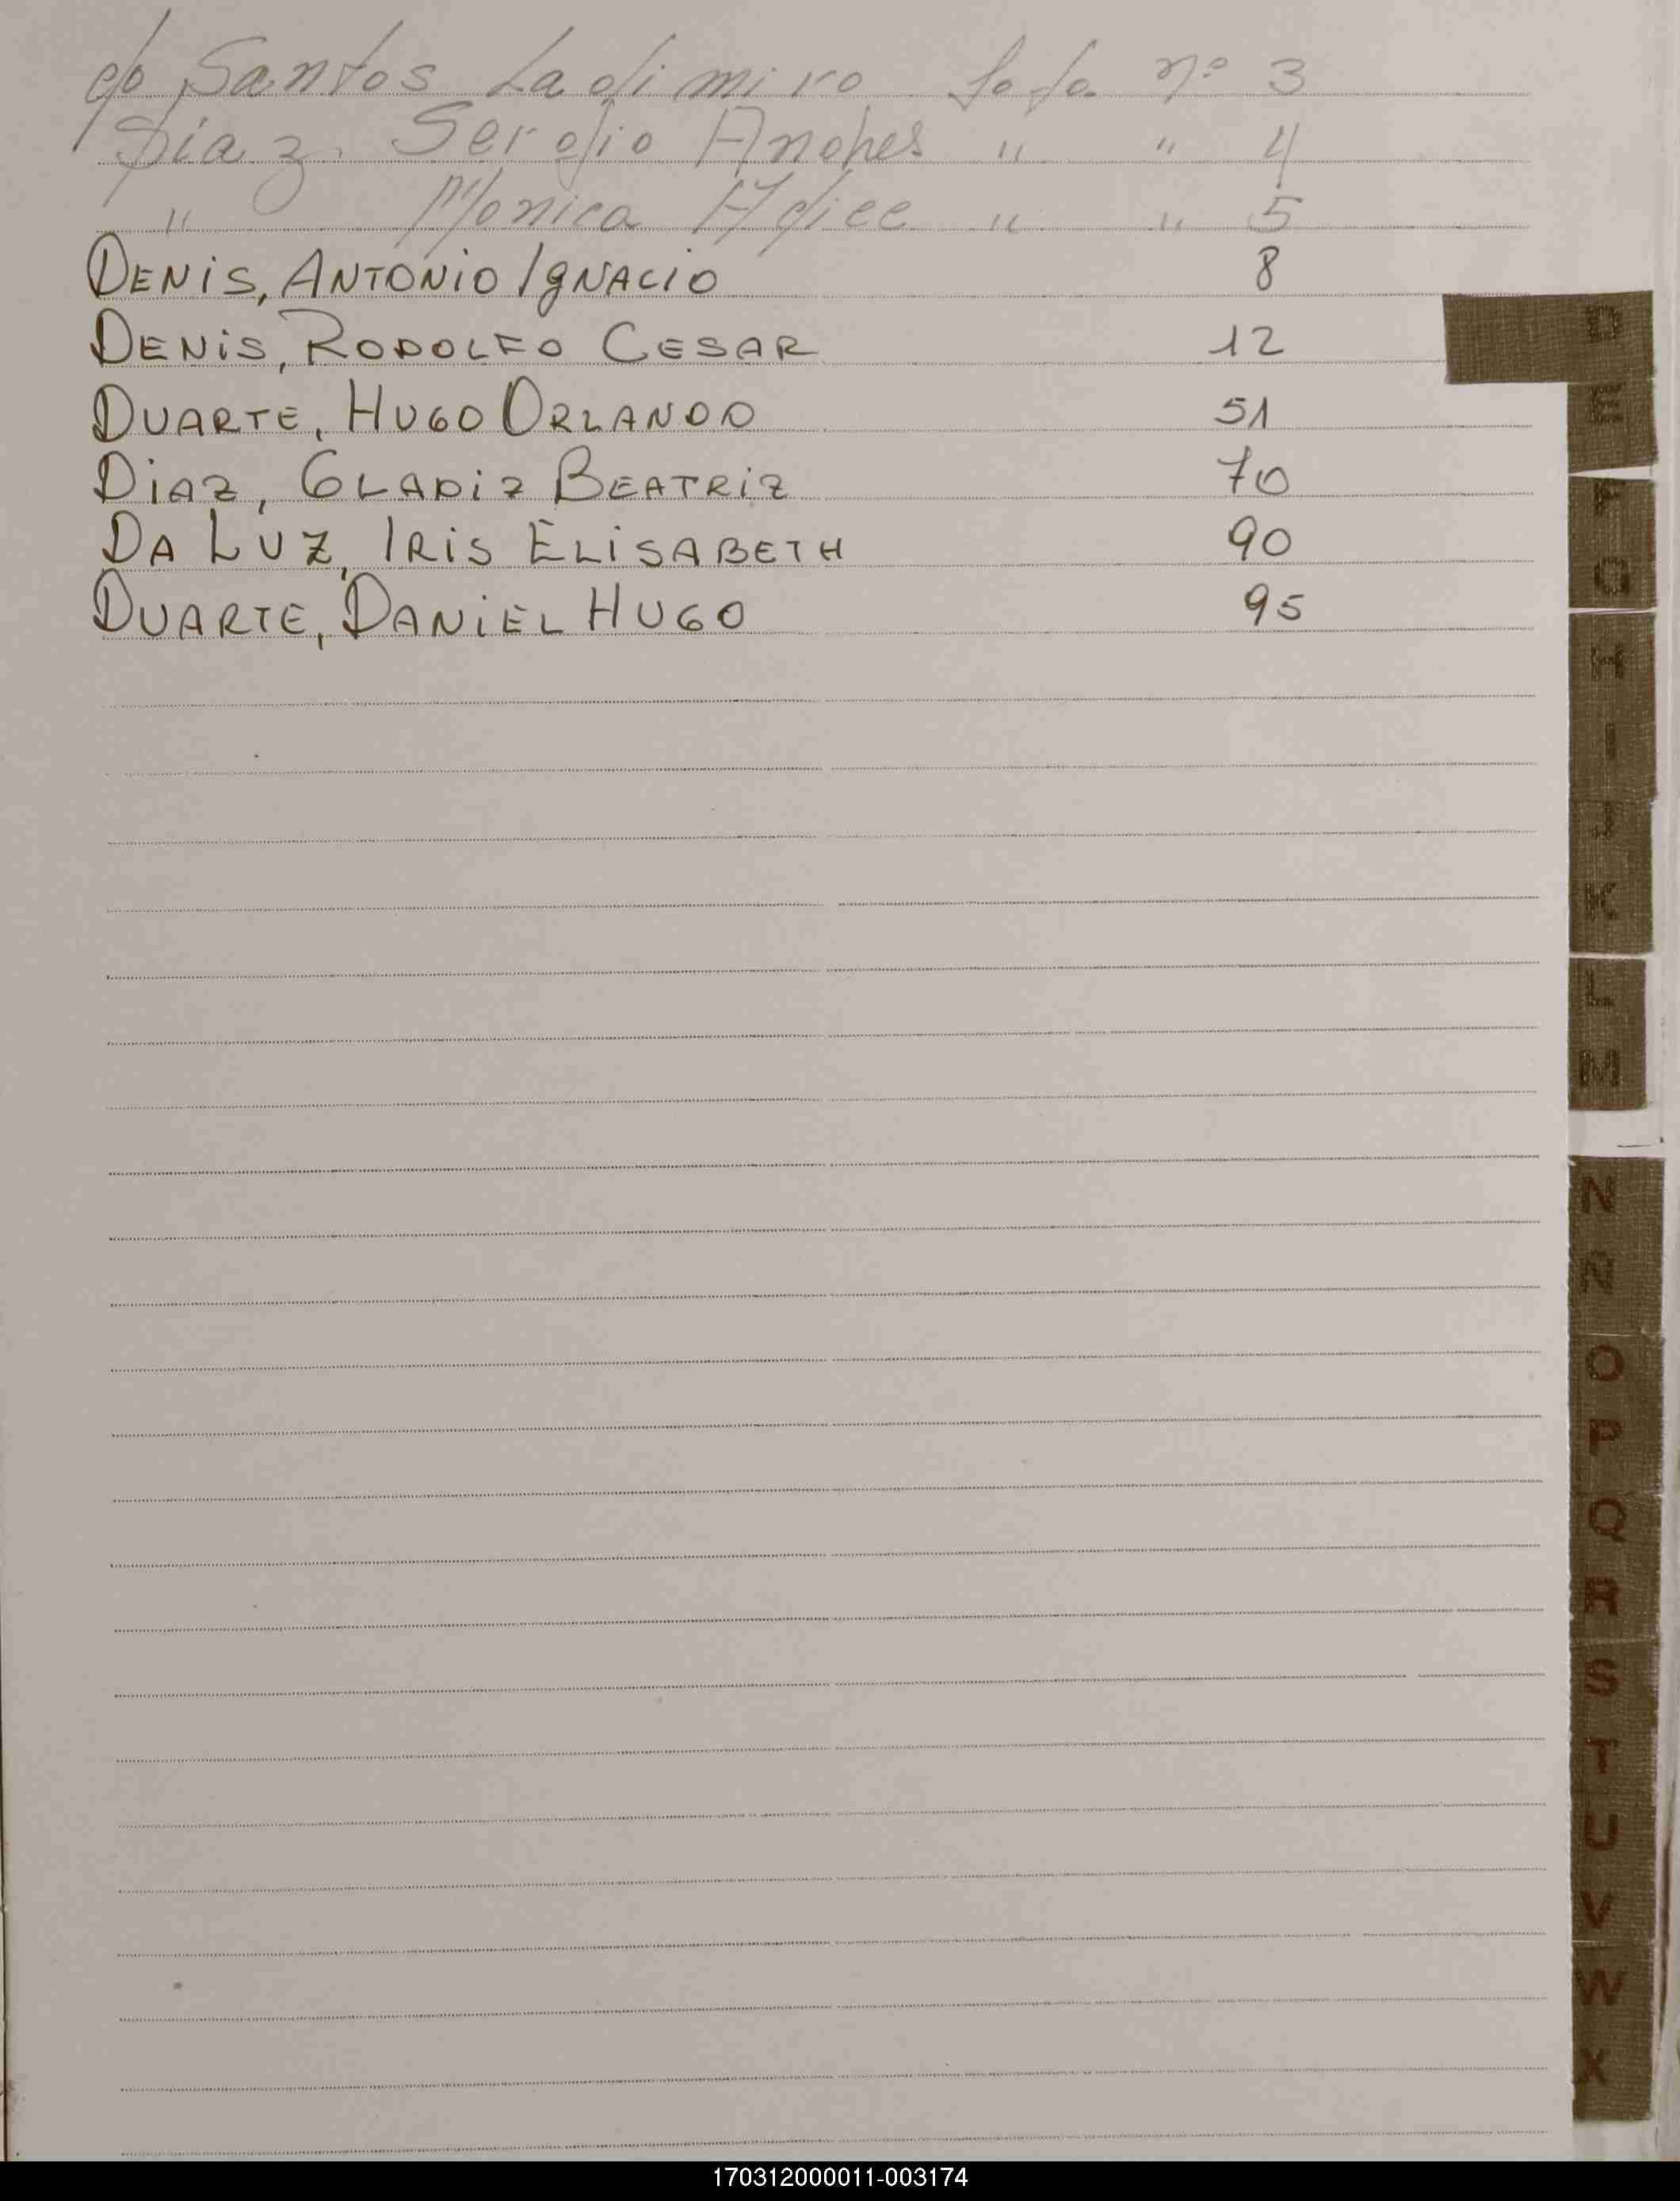 do Santos Ladimiro n° 3
Diaz. Sergio Andres " " 4
" Monica " " 5
DENIS, ANTONIO IGNACIO 8
DENIS, RODOLFO CESAR 12
DUARTE, HUGO ORLANDO 51
DIAZ, GLADIZ BEATRIZ 70
DA LUZ, IRIS ELISABETH 90
DUARTE, DANIEL HUGO 95
D
E
F
G
H
I
J
K
L
M
N
Ñ
O
P
Q
R
S
T
U
V
W
X
170312000011-003174